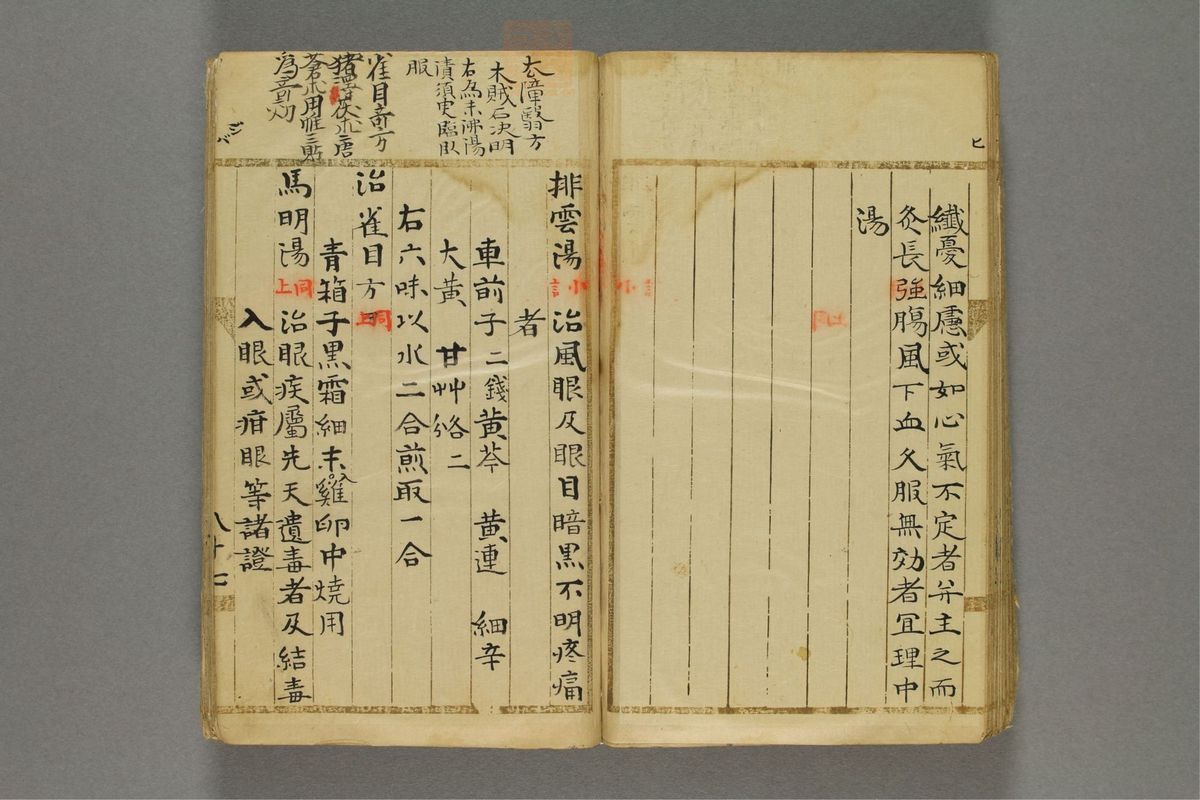 纖憂細慮或如心氣不定者并主之而
灸長強腸風下血久服無効者冝理中
湯
去障翳方
木賊石決明
右為末沸湯
漬須臾臨臥
服
雀目竒方
排雲湯 治風眼及眼目暗黒不明疼痛
者
車前子二錢黄芩 黄連 細辛
大黄 甘艸各二
右六味以水二合煎取一合
治雀目方 同上
青箱子黒霜細末入雞卵中焼用
馬明湯 同上 治眼疾屬先天遺毒者及結毒
入眼或疳眼等諸證